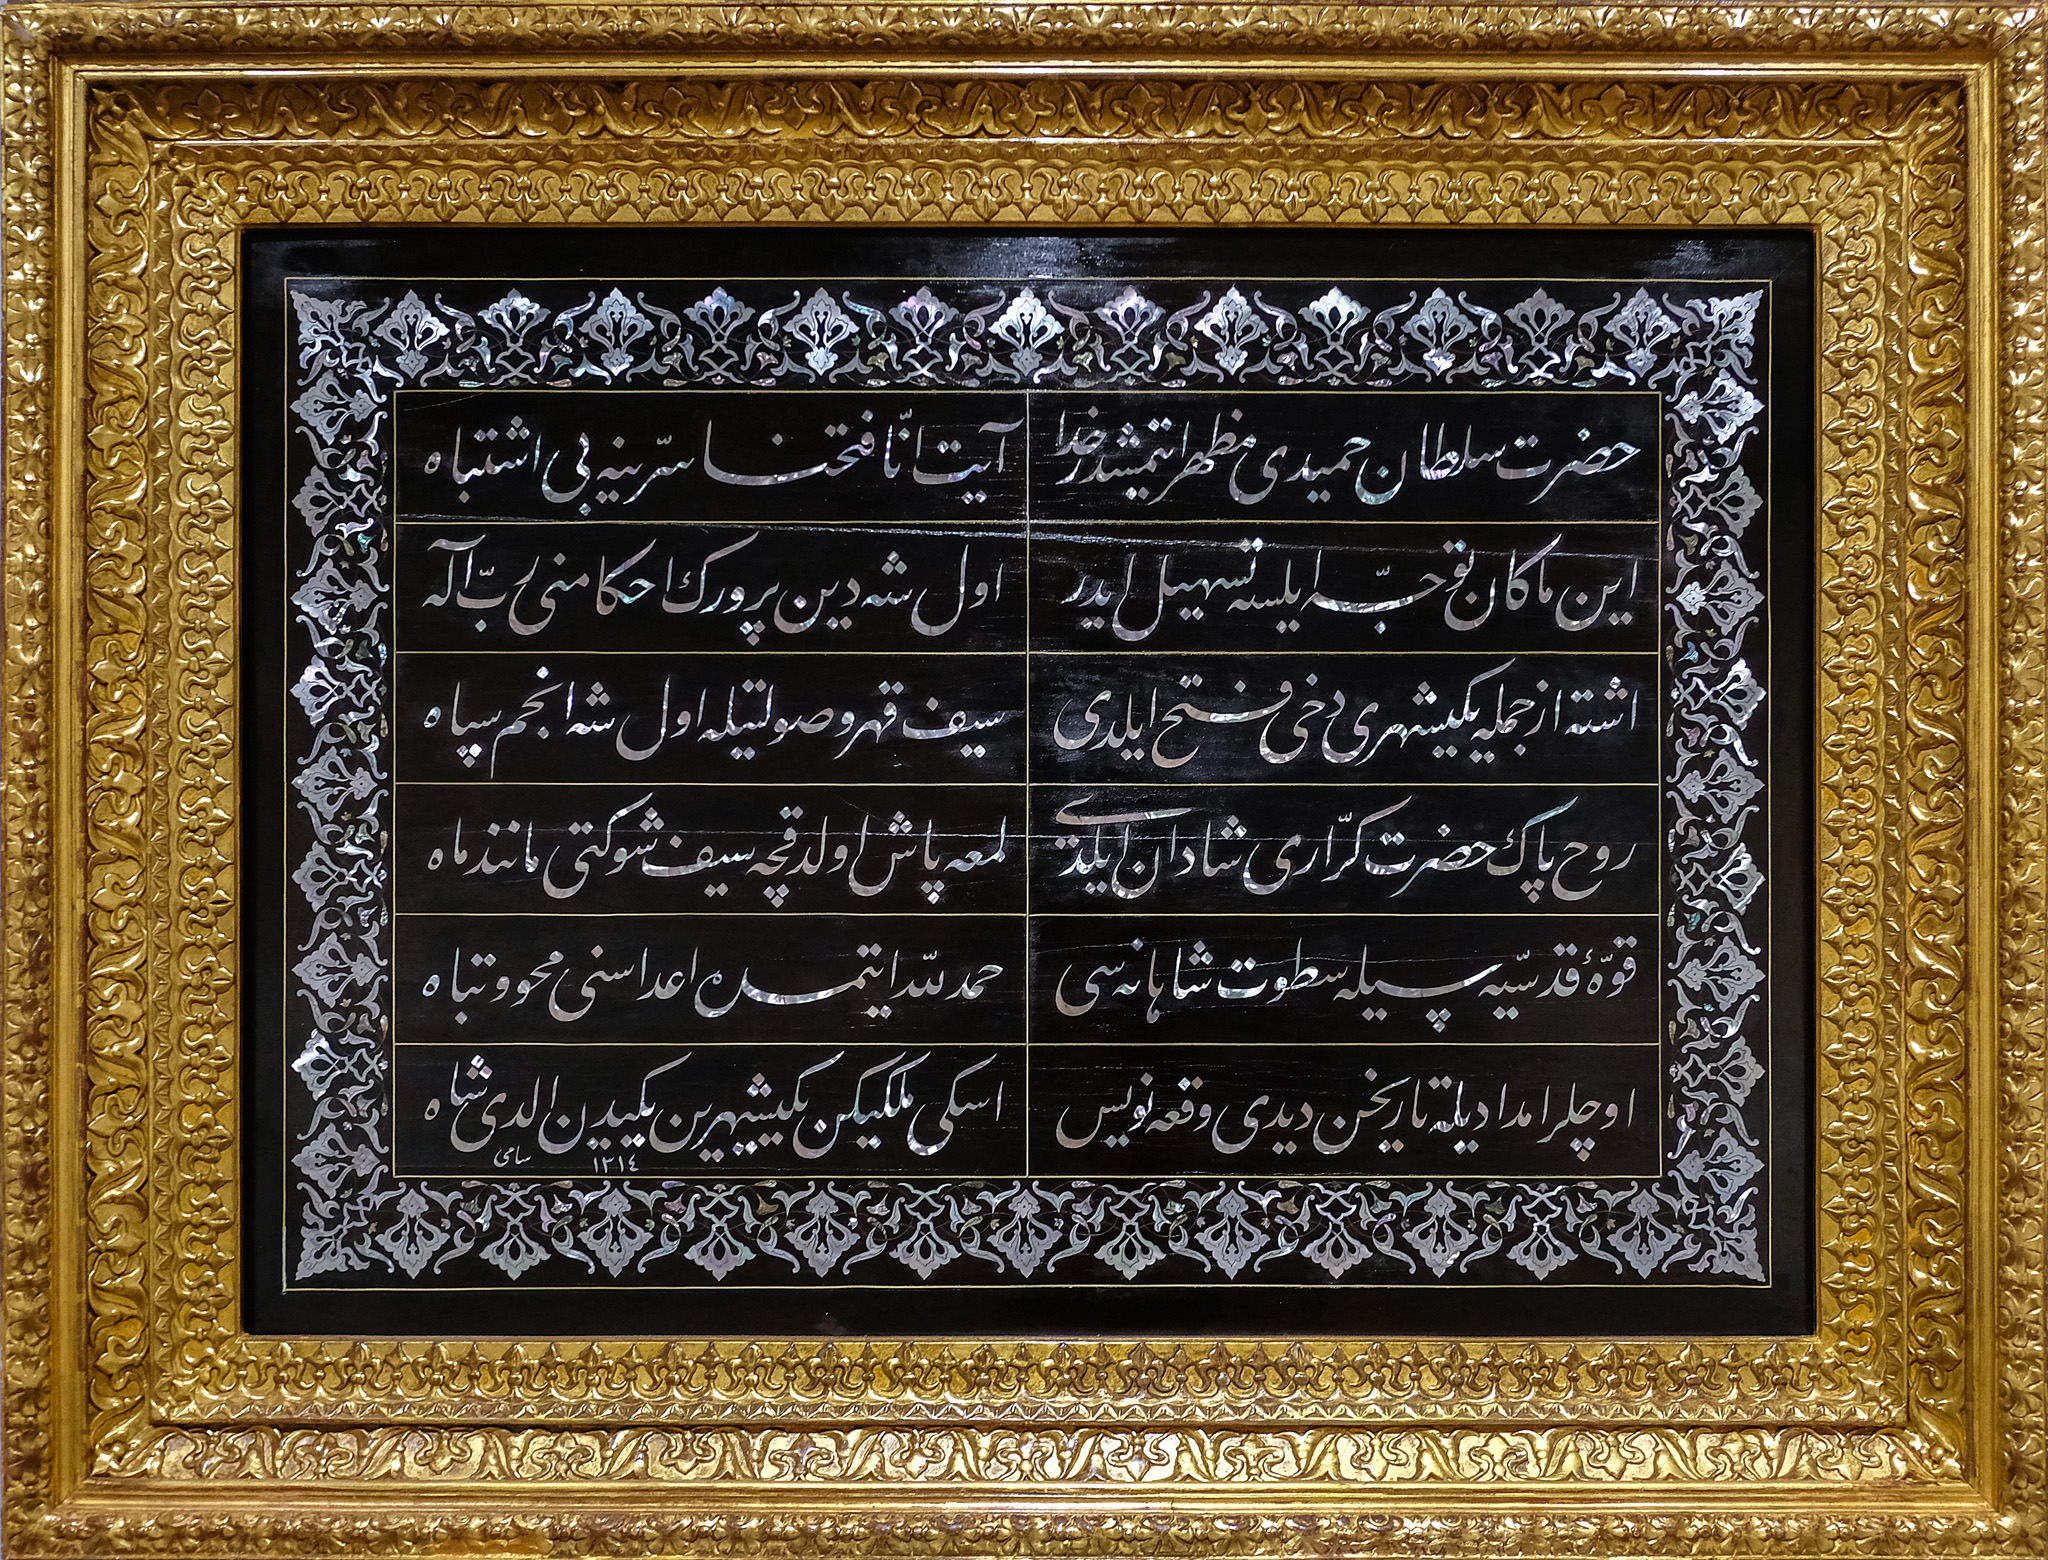 حضرت سلطان حمیدی مظهر ایتمشدر خدا
آیت انّا فتحنا سرّینه بی اشتباه
این ماکان توجّه ایلسه تسهیل ایدر
اول شه دین پرورك احکامنی ربّ آله
اشته از جمله یکیشهری دخی فتح ایلدی
سیف قهر و صولتیله اول شه انجم سپاه
روح پاك حضرت کرّاری شادان ایلدی
لمعه پاش اولدقچه سیف شوکتی مانند ماه
قوّهٔ قدسیّه سیله سطوت شاهانه سی
حمد لله ایتمده اعداسنی محو و تباه
اوچلر امداد یلته تاریخن دیدی وقعه نویس
اسکی ملکیکن یکیشهرین یکیدن الدی شاه
١٣١٤ سامی